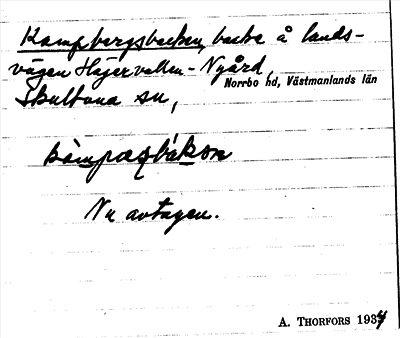 Kampbergsbacken, backe å lands-
vägen Häjervallen - Nygård,
Norrbo hd, Västmanlands län
Skultuna sn,
Nu avtagen.
A. THORFORS 1934